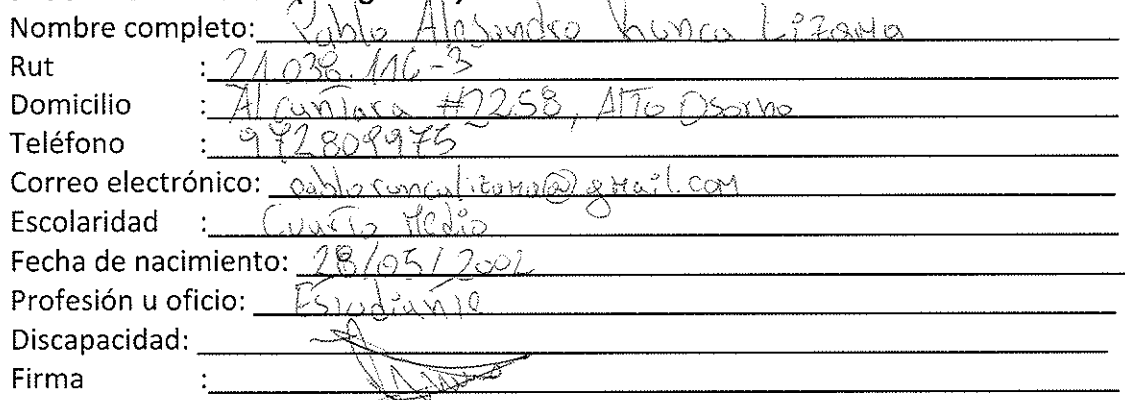 Nombre completo: Pablo Alejandro Lizama
Rut : 21.038.116-3
Domicilio : Alcantara #2258, Alto Osorno
Teléfono : 972809975
Correo electrónico: @gmail.com
Escolaridad : Cuarto Medio
Fecha de nacimiento: 28/05/2002
Profesión u oficio: Estudiante
Discapacidad:
Firma :